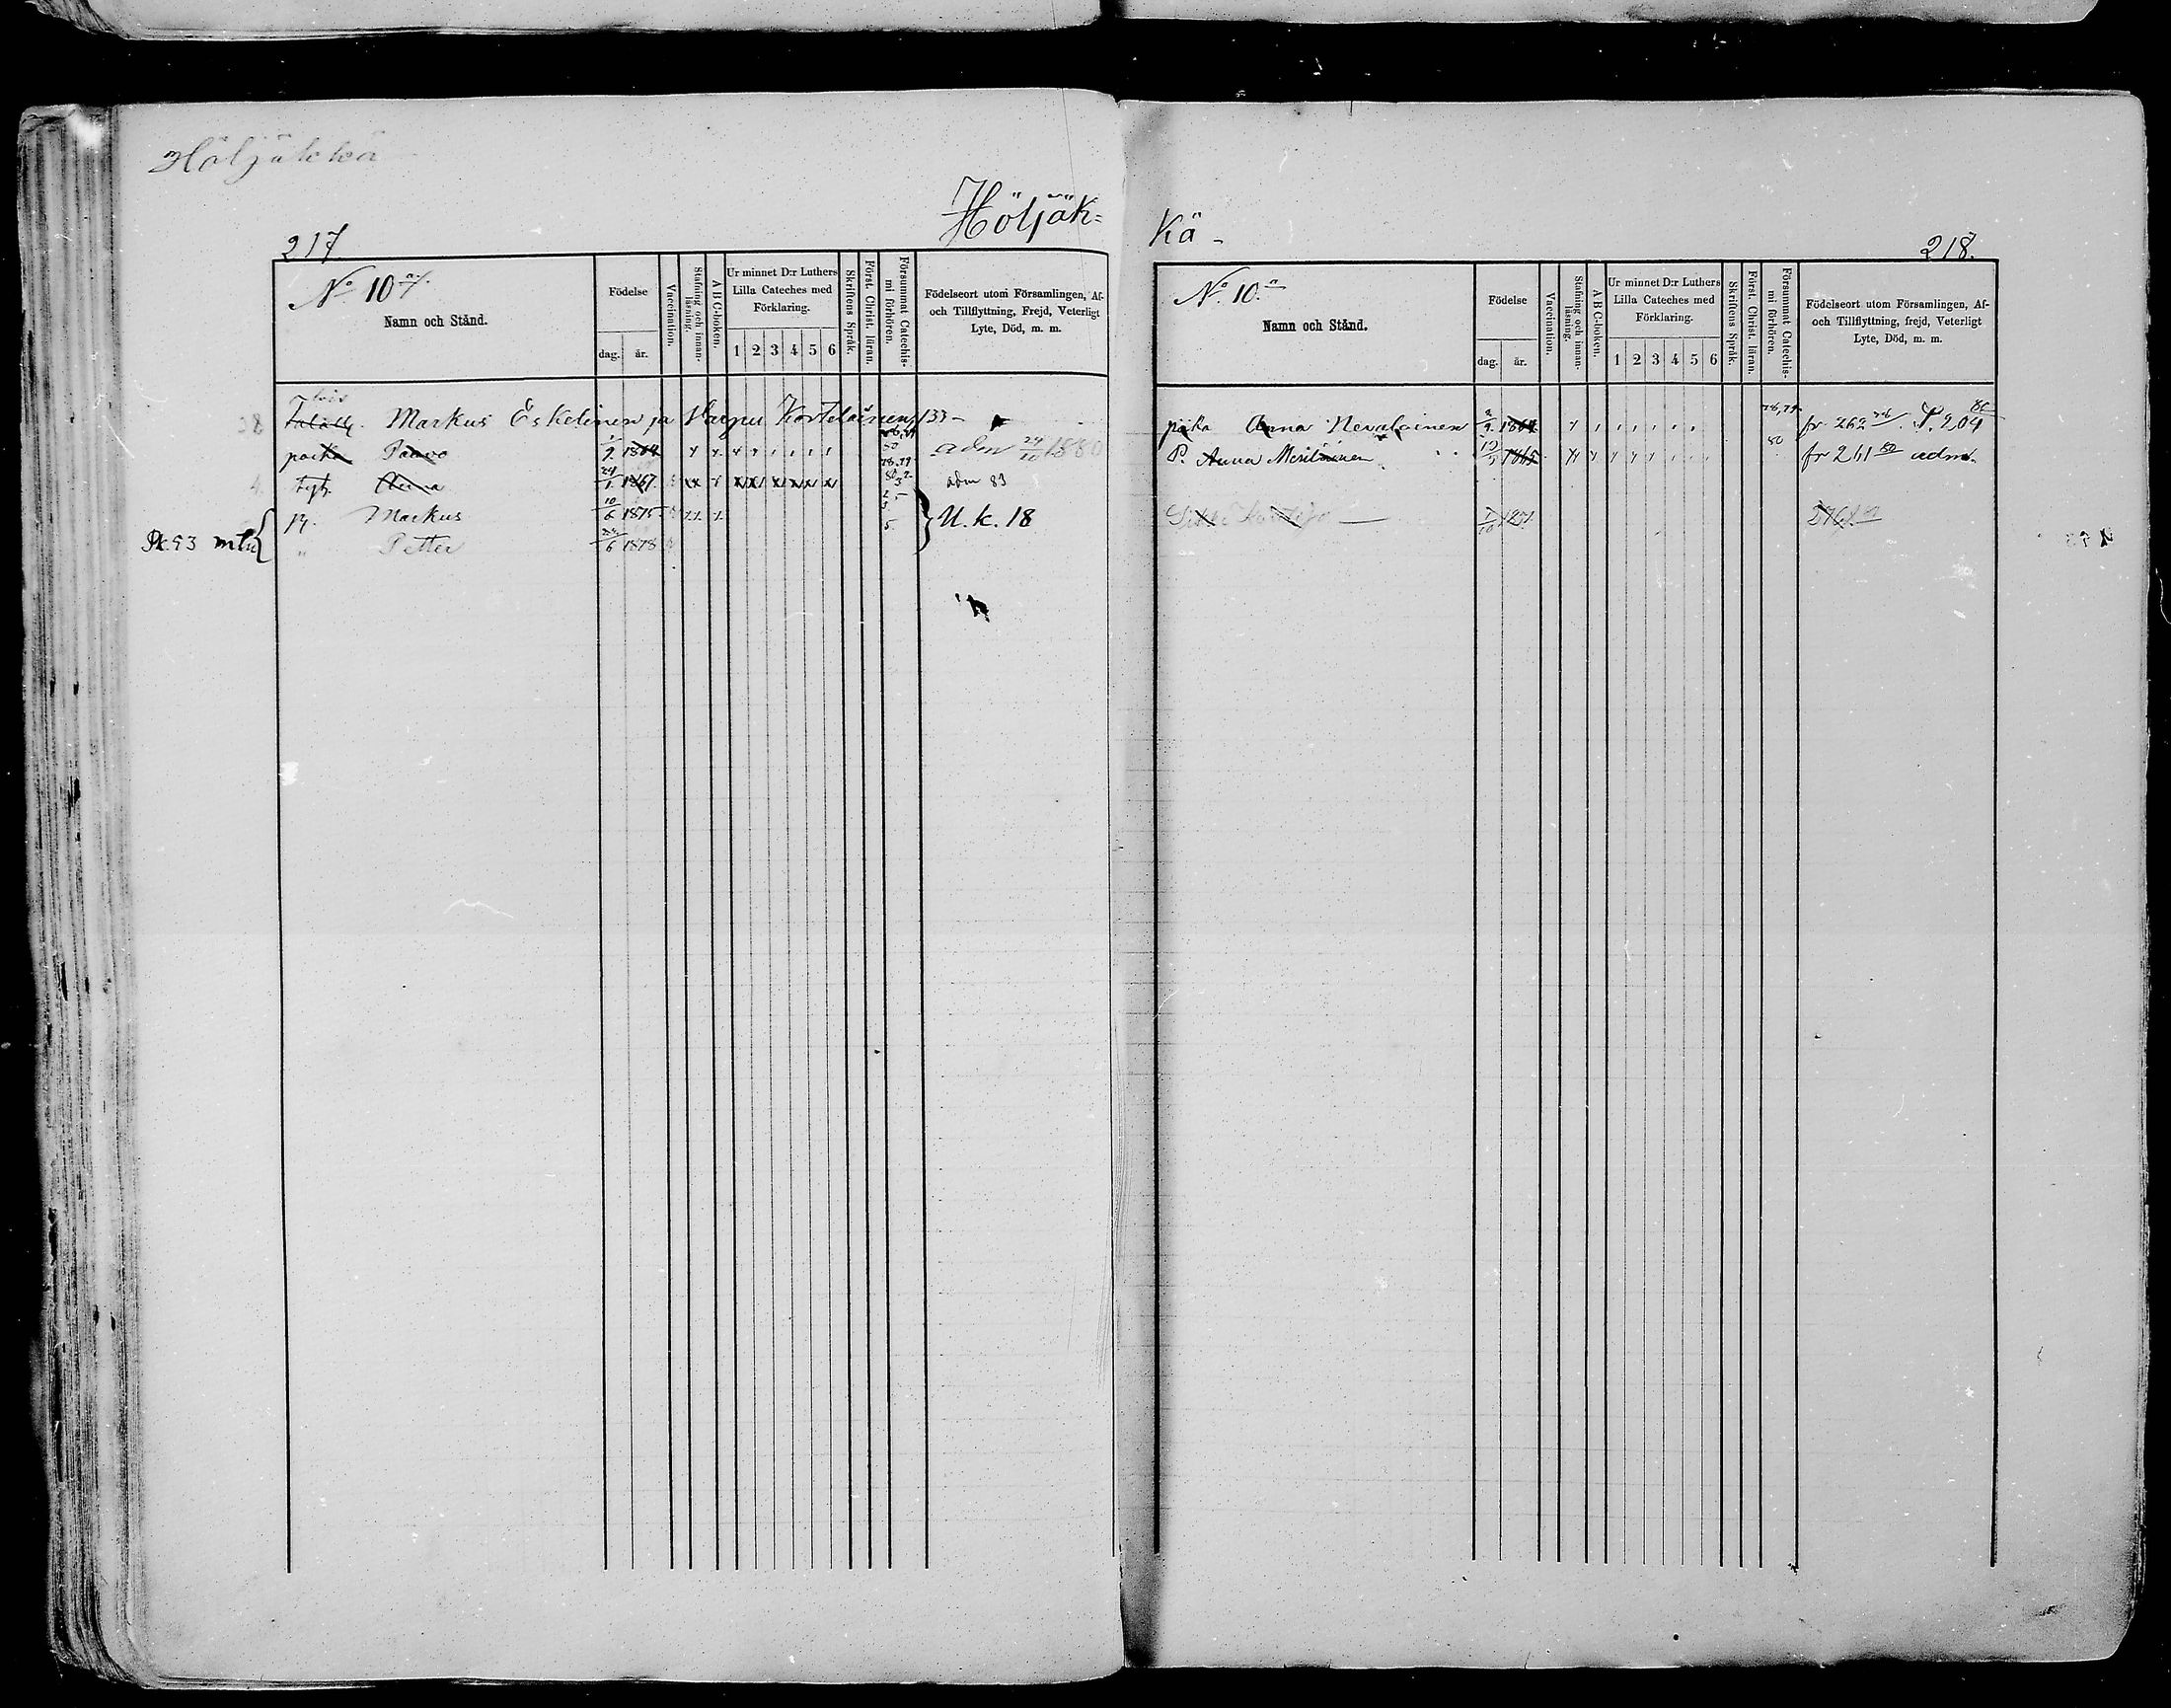 Höljäkkä
Höljäk=
217.
No 10 a/.
Namn och Stånd.
Födelse
dag.
år.
Vaccination.
Stafning och innanläsning.
A B C-boken.
Ur minnet D:r Luthers
Lilla Cateches med
Förklaring.
1 2 3 4 5 6
Skriftens Språk.
Först. Christ. läran.
Försummat Catechismi förhören.
Födelseort utom Församlingen, Af-
och Tillflyttning, Frejd, Veterligt
Lyte, Död, m. m.
Markus Eskelinen ja Varpu Kortelainen, 133 -
poika Paavo 1864 78,79 80 adm 24/10 1880
tyt. Anna 24/1 1867 78.79 adm 83
p. Markus 10/6 1875 U. k. 18
Pk. 53
" Petter 6 1878
Kä -
218.
No. 10. a
Namn och Stånd.
Födelse
dag.
år.
Vaccination.
Stafning och innanläsning.
A B C-boken.
Ur minnet D:r Luthers
Lilla Cateches med
Förklaring.
1 2 3 4 5 6
Skriftens Språk.
Först. Christ. läran.
Försummat Catechismi förhören.
Födelseort utom Församlingen, Af-
och Tillflyttning, frejd, Veterligt
Lyte, Död, m. m.
piika Anna Nevalainen 1864 78,79 fr 262 P. 204
P. Anna Meriläinen 1865 80 fr 261 80 adm.